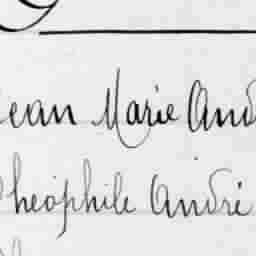 Jean Marie And
Théophile André